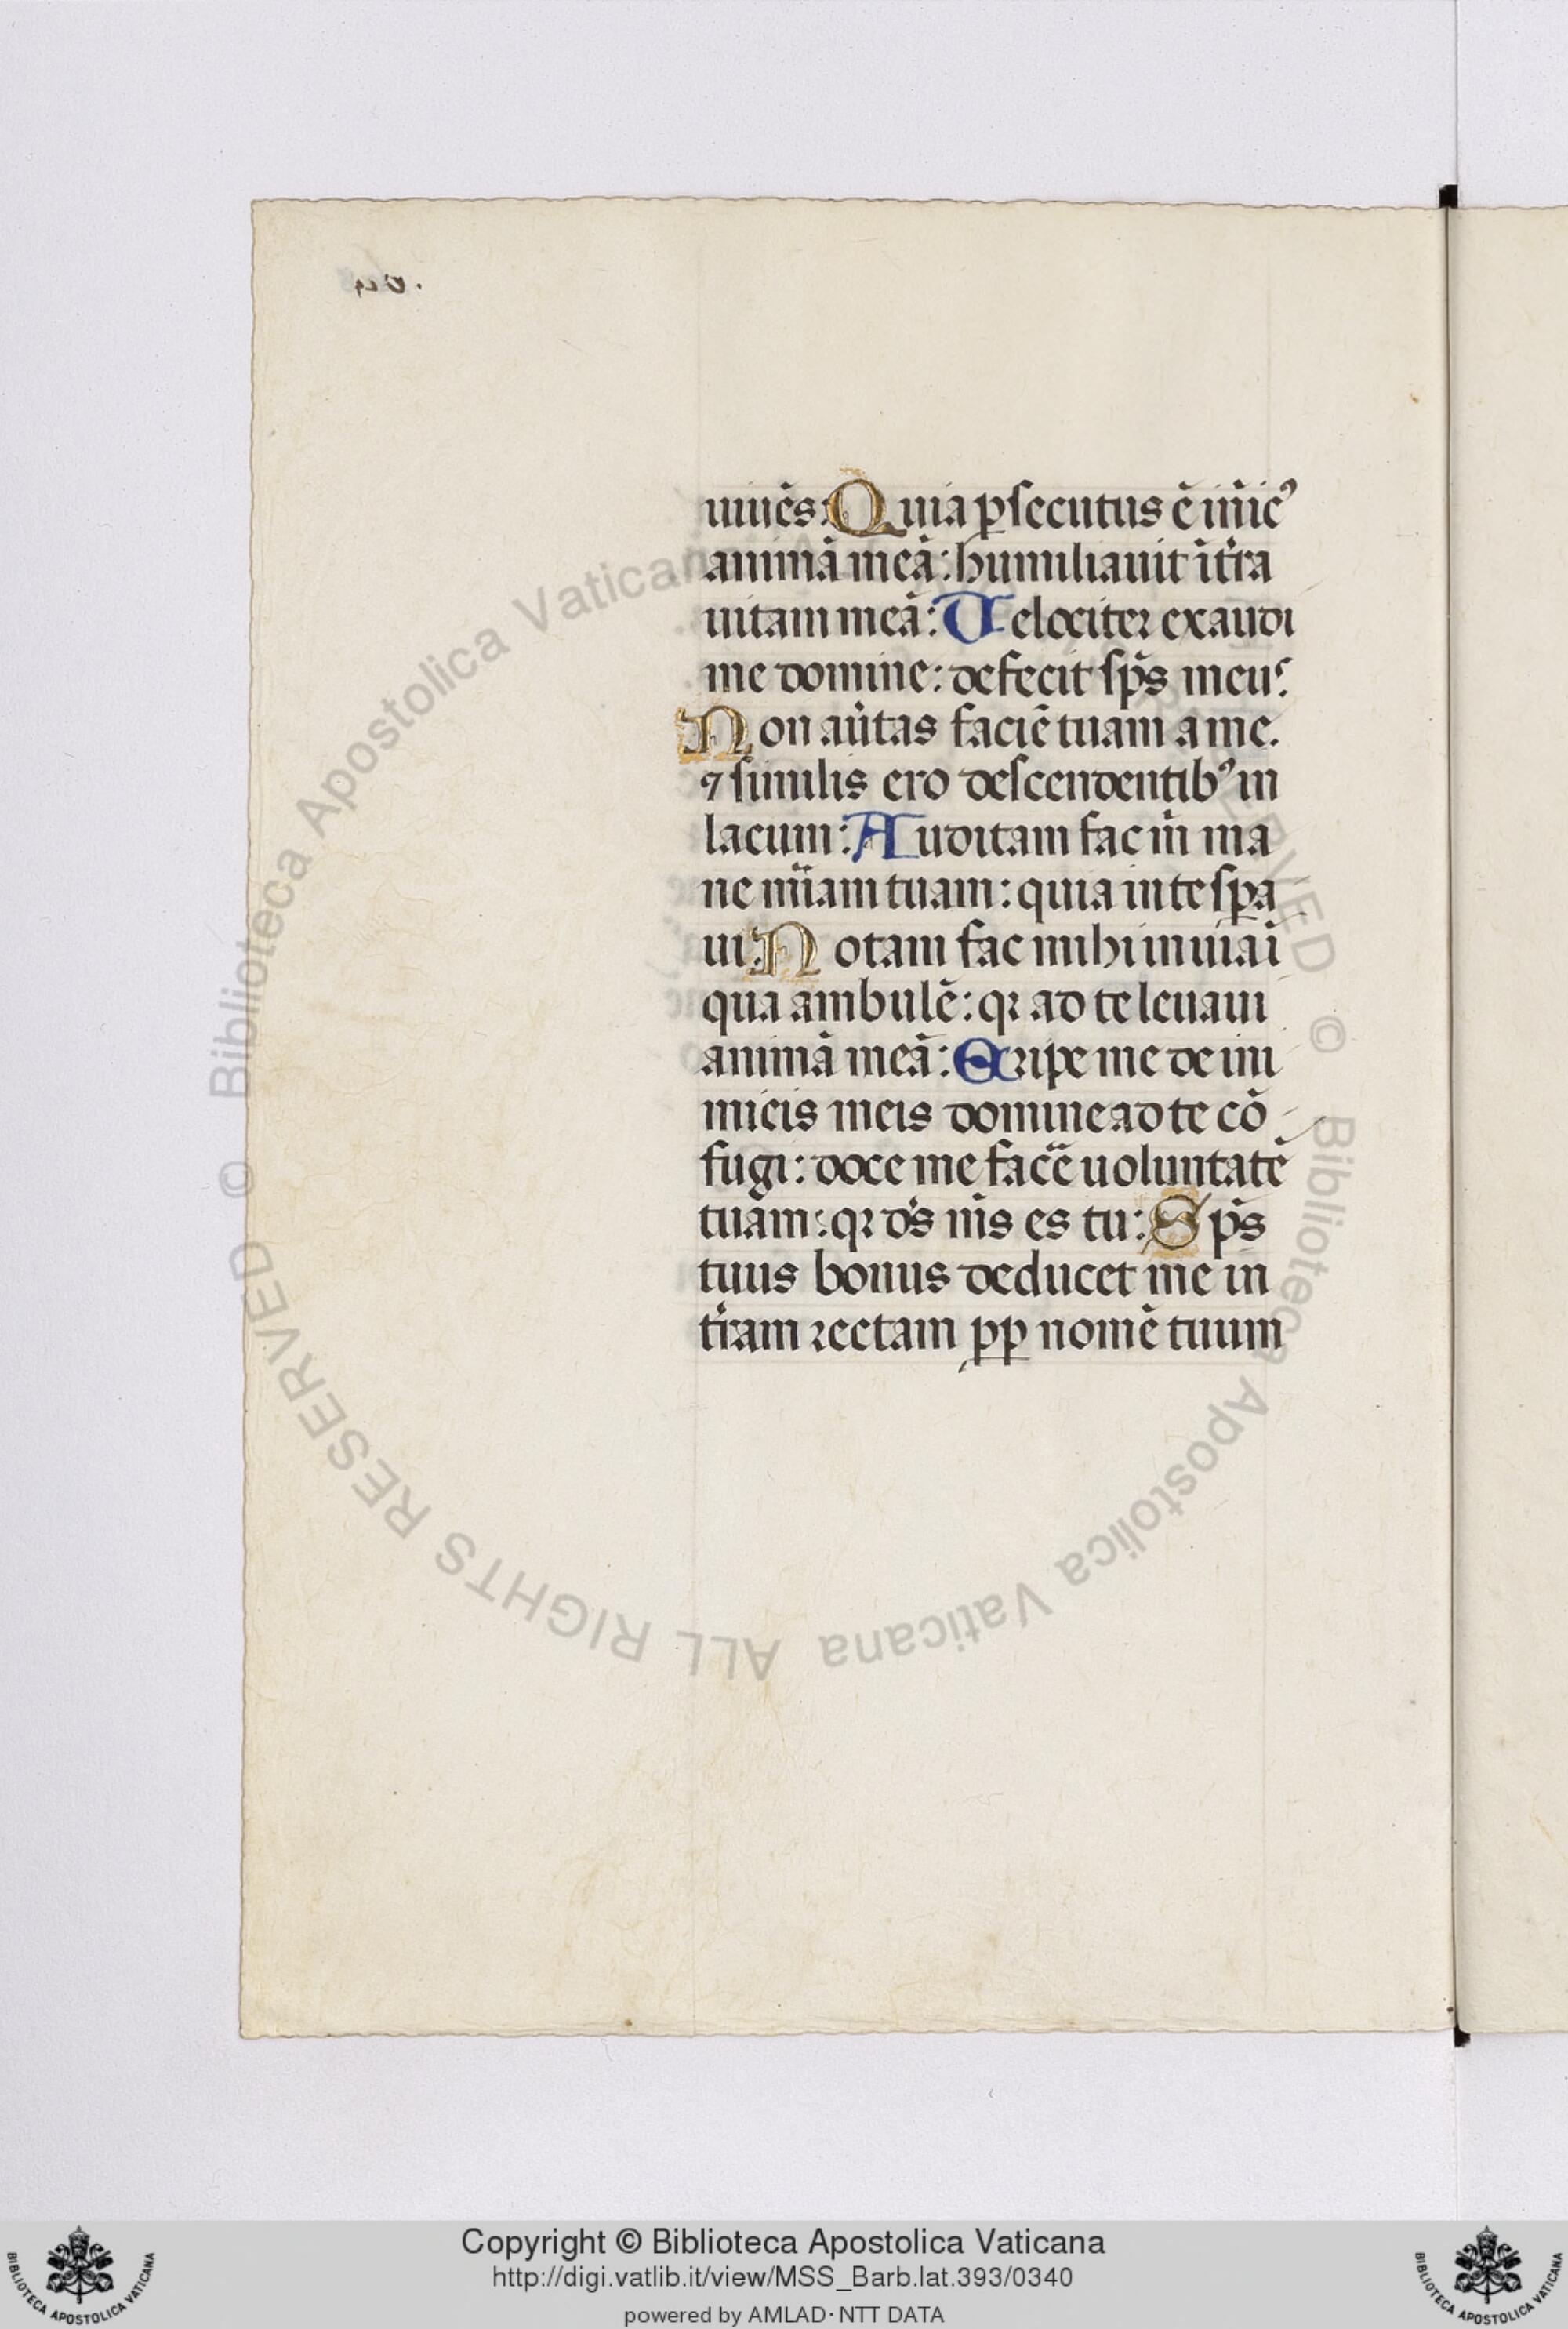 uiuēs: Quia ꝑsecutus ē inīcꝰ
animā meā: humiliauit ĩt̃ra
uitam meā: Uelociter exaudi
me domine: defecit sp̄s meuˢ.
Non aũtas faciē tuam a me.
⁊ similis ero descendentibꝰ in
lacum: Auditam fac m̄ ma
ne m̄iam tuam: quia in te sꝑa
ui. Notam fac mihi in uiā ĩ
qua ambulē: qꝛ ad te leuaui
animā meā: Eripe me de ini
micis meis domine ad te cō
fugi: doce me facẽ uoluntatē
tuam: qꝛ dˢs m̄s es tu: Sp̄s
tuus bonus deducet me in
t̃ram rectam ꝓp nomē tuum
© Biblioteca Apostolica Vaticana ALL RIGHTS RESERVED
© Biblioteca Apostolica Vaticana ALL RIGHTS RESERVED
Copyright © Biblioteca Apostolica Vaticana
http://digi.vatlib.it/view/MSS_Barb.lat.393/0340
powered by AMLAD·NTT DATA
BIBLIOTECA APOSTOLICA VATICANA
BIBLIOTECA APOSTOLICA VATICANA